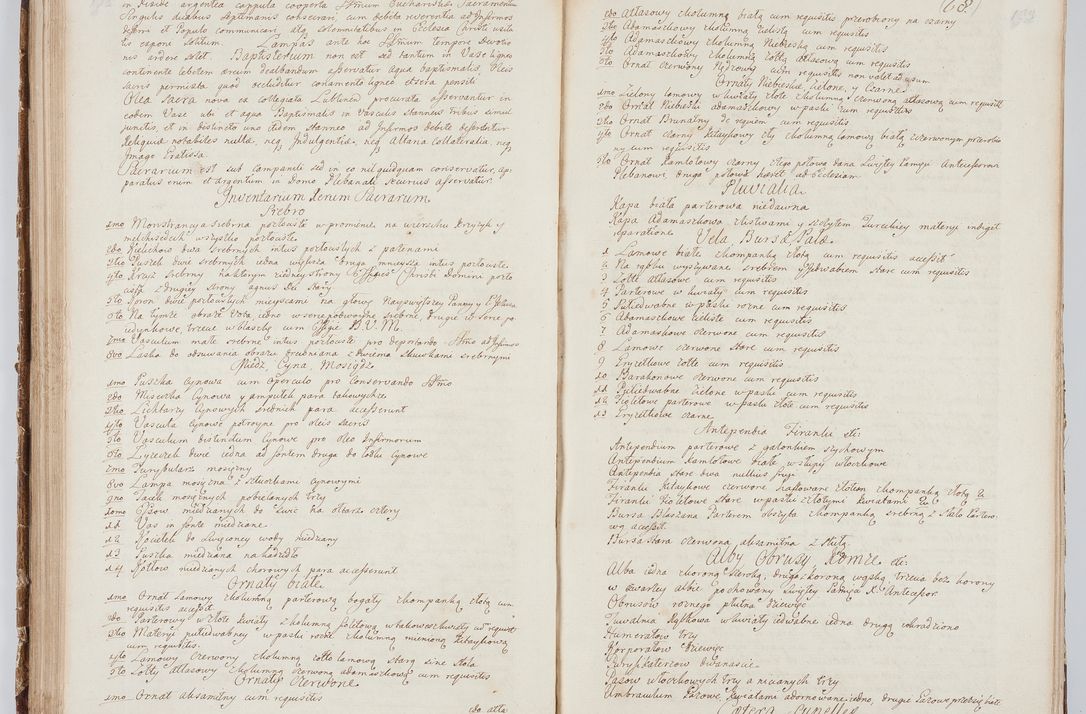 in Pixide argentea cappula cooperta SSmum Eucharistiae Sacramentum
singulis duabus septimanis consecrari, cum debita reverentia ad Infirmos
deferri et Populo communicari atq solemnitatibus in Ecclesia Christi
tis exponi solitum. Lampas ante hoc SSmum tempore Devotio
nis ardere solet. Baptisterium non est sed tantum in Vase ligneo
continente lebetem aereum dealbandum asservatur aqua baptismalis Oleis
sacris permixta quod occluditur conamento ligneo et sera pensili
Olea Sacra nova ex collegiata Lublinen procurata asservantur in
eodem Vase ubi et aqua Baptismalis in Vasculis stanneis tribus simul
junctis, et in distincto uno itidem stanneo ad Infirmos debite defertur
Reliquiae notabiles nullae, neq Indulgentiae, neq Altaria Collateralia, neq
Imago Gratiosa
Sacrarium est sub campanili sed in eo nil quidquam conservatur, ap
paratus enim et argentum in Domo Plebanali securius asservatur.
Inventarium Rerum Sacrarum
Srebro
1mo Monstrancya srebrna pozłocista w promenie na wierzchu krzyżyk y
melchisedech wszystko pozłociste
2do Kielichow dwa srebrnych intus pozłocistych z patenami
3tio Puszek dwie srebrnych iedna większa druga mnieysza intus pozłociste
4to Krzyż srebrny na ktorym z iedney strony Effigies Christi Domini pozło
cista z drugiey strony agnus Dei
5to Koron dwie pozłocistych mieyscami na głowę Nayświętszey Panny y P. Jezusa
6to Na tymże obrazie Vota iedno w sercu podwoyne srebrne, drugie w sercu po
iedynkowe, trzecie w blaszkę cum Effigie B.V.M.
7mo Vasculum małe srebrne intus pozłociste pro deportando SSmo ad Infirmos
8vo Laska do obsuwania obrazu drewniana z dwiema skuwkami srebrnymi
Miedz, Cyna, Mosiądz
1mo Puszka cynowa cum operculo pro conservando SSmo
2do Miseczka cynowa y ampułek para takowychże
3tio Lichtarzy cynowych srednich para accesserunt
4to Vascula cynowe potroyne pro oleis sacris
5to Vasculum distinctum cynowe pro oleo Infirmorum
6to Łyżeczek dwie iedna ad fontem druga do łodki cynowe
7mo Turybularz mosiężny
8vo Lampa mosiężna z sztuczkami cynowymi
9no Tacek mosiężnych pobielanych trzy
10mo Cyzow miedzianych do swic na ołtarz cztery
11 Vas in fonte miedziane
12 Kociełek do święconey wody miedziany
13 Puszka miedziana na kadzidło
14 Kotłow miedzianych chorowych para accesserunt
Ornaty białe
1mo Ornat Lamowy kolumną parterową bogaty z kompanką złotą cum
requisitis accessit
2do Parterowy w złote kwiaty z kolumną fioletową w takoweż kwiaty cu requisit
3tio Materyi putiedwabney w paski rozne kolumną mienioną kitaykową
cum requisitis.
4to Lamowy Czerwony kolumną żołto lamową stary sine stola
5to Zołty attasowy kolumną czerwoną adamaszkową cum requisitis
Ornaty Czerwone
1mo Ornat aksamitny cum requisitis
2do atła
(68)
2do Atłasowy kolumną białą cum requisitis przerobiony na czarny
3tio Adamaszkowy kolumną zielistą cum requisitis
4to Adamaszkowy kolumną Niebieską cum requisitis
5to Adamaszkowy kolumną żołtą atłasową cum requisitis
6to Ornat czerwony Nędzowy cum requisitis non valet ad usum
Ornaty Niebieskie, Zielone, y Czarne
1mo Zielony Lamowy w kwiaty złote kolumną czerwoną atłasową cum requisit
2do Ornat Niebieski adamaszkowy w paski cum requisitis
3tio Ornat Brunatny de requiem cum requisitis
4to Ornat czarny kitaykowy cały kolumną lamową białą czerwonym przerobio
ny cum requisitis
5to Ornat kamlotowy czarny czego połowa dana Swiętey pamięci Antecessorowi
Plebanowi druga połowa haeret ad Eclesiam
Pluvialia
Kapa biała parterowa niedawna
Kapa Adamaszkowa z listwami y szczytem Tureckiey materyi indiget
reparatione
Vela, Bursae Palae
1 Lamowe białe z kompanką złotą cum requisitis accessit
2 Na rąbku wyszywane srebrem y jedwabiem stare cum requisitis
3 Zołte atłasowe cum requisitis
4 Parterowe w kwiaty cum requisitis
5 Putiedwabne w paski rozne cum requisitis
6 Adamaszkowe zieliste cum requisitis
7 Adamaszkowe czerwone cum requisitis
8 Lamowe czerwone stare cum requisitis
9 Gryzetkowe żołte cum requisitis
10 Barakanowe czerwone cum requisitis
11 Putiedwabne zielone w paski cum requisitis
12 Fioletowe parterowe w paski złote cum requisitis
13 Gryzetkowe czarne
Antependia Firanki etc:
Antependium parterowe z galonkiem szychowym
Antependium kamlotowe białe w słupy włoczkowe
Antependia stare dwa nullius frugi
Firanki kitaykowe czerwone haftowane złotem z kompanką złotą 2
Firanki Fioletowe stare w paski z złotymi kwiatami 2
Bursa Blaszana Parterem obszyta z kompanką srebrną z stułą Partero
wą accessit.
Bursa stara czerwona aksamitna z stułą
Alby Obrusy Komże etc:
Alba iedna z koroną szeroką, druga z koroną wąską, trzecia bez korony
w czwartey albie pochowany Swiętey Pamięci X. Antecesor
Obrusow roznego płutna dziewięć
Tuwalnia Rąbkowa w kwiaty iedwabne iedna drugą ukradziono
Humerałow trzy
Korporałow dziewięć
Puryfikaterzow dwanascie
Pasow włoczkowych trzy a nicianych trzy
Umbraculum Pąsowe kwiatami adornowane iedno, drugie Pąsowe przeszyte białe